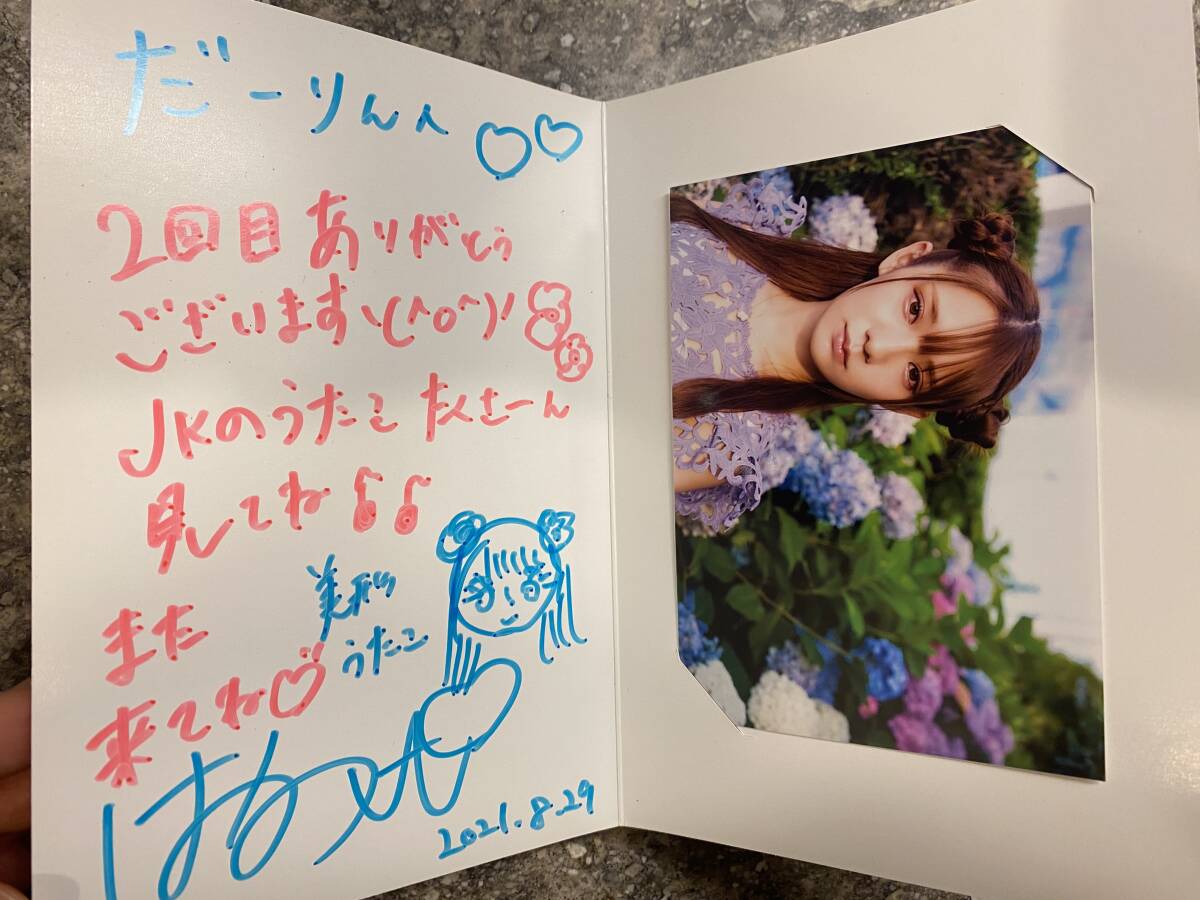 だーりんへ
2回目 ありがとう
ございますヽ(^o^)ﾉ
JKのうたこ たくさーん
見てね♪♪
美形
うたこ
また
来てね♡
2021.8.29